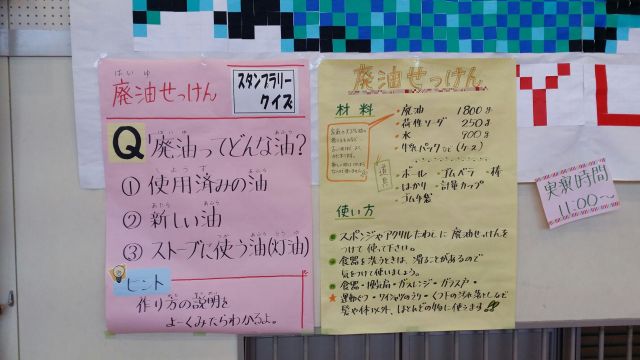 廃油せっけん
はいゆ
スタンプラリー
クイズ
Q 廃油ってどんな油?
はいゆ
あぶら
① 使用済みの油
しようず
あぶら
② 新しい油
あたら
あぶら
③ ストーブに使う油(灯油)
ヒント
作り方の説明を
よーくみたらわかるよ。
廃油せっけん
材料
・廃油 1800g
・苛性ソーダ 250g
・水 900g
・牛乳パックなど(ケース)
道具
・ボール・ゴムベラ・棒
・はかり・計量カップ
・ゴム手袋
使い方
スポンジやアクリルたわしに廃油せっけんを
つけて使って下さい。
食器を洗うときは、滑ることがあるので
気をつけて使いましょう。
食器・換気扇・ガスレンジ・ガラス戸・
★運動ぐつ・ワイシャツのえり・くつ下の汚れ落としなど
髪や体以外、ほとんどの物に使えます
実演時間
11:00~
YL